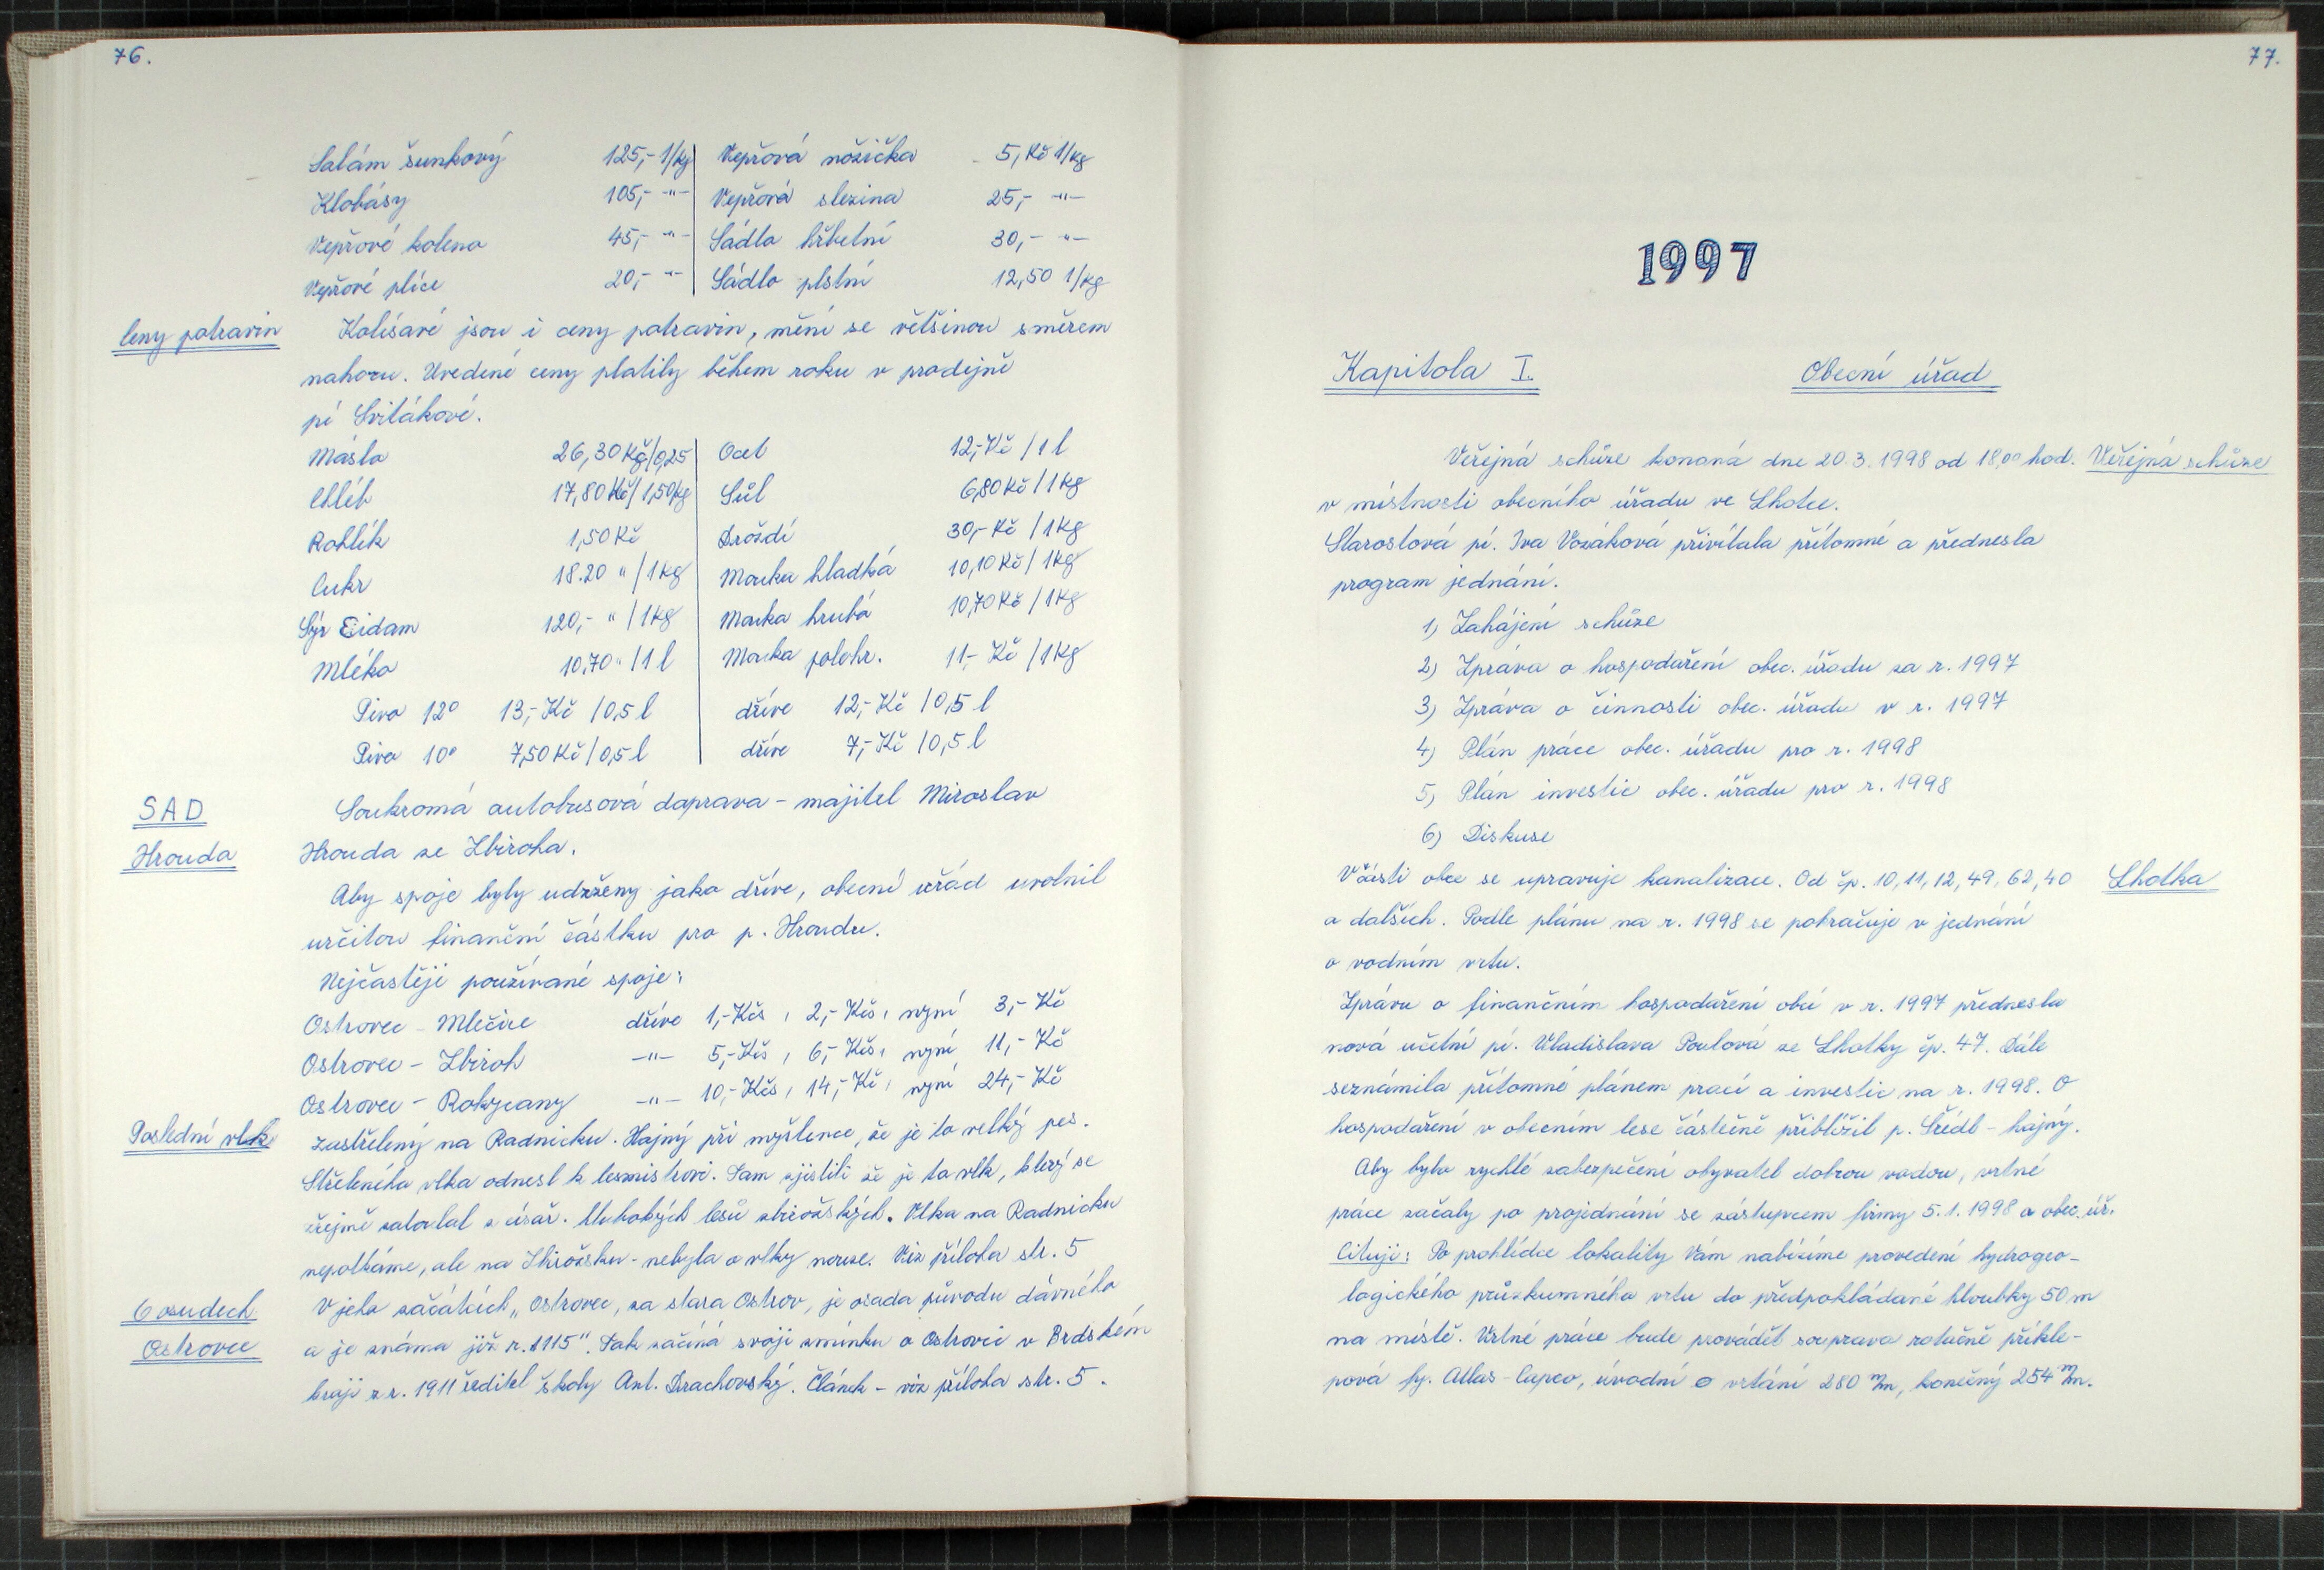 76.
Salám šunkový 125,- 1/kg Vepřová nožička 5,Kč 1/kg
Klobásy 105,- -"- Vepřová slezina 25,- -"-
Vepřové koleno 45,- -"- Sádlo hřbetní 30,- -"-
Vepřové plíce 20,- -"- Sádlo plstní 12,50 1/kg
Ceny potravin Kolísavé jsou i ceny potravin, mění se většinou směrem
nahoru. Uvedené ceny platily během roku v prodejně
pí Svitákové.
Máslo 26,30 Kč/0,25 Ocet 12,-Kč /1 l
Chléb 17,80 Kč/1,50kg Sůl 6,80 Kč /1kg
Rohlík 1,50 Kč Droždí 30,- Kč /1kg
Cukr 18.20 " /1kg Mouka hladká 10,10 Kč/1kg
Sýr Eidam 120,- " /1kg Mouka hrubá 10,70 Kč /1kg
Mléko 10,70 " /1 l Mouka polohr. 11,- Kč /1kg
Pivo 12° 13,-Kč /0,5 l dříve 12,-Kč /0,5 l
Pivo 10° 7,50 Kč/0,5 l dříve 7,-Kč /0,5 l
SAD Soukromá autobusová doprava - majitel Miroslav
Hrouda Hrouda ze Zbiroha.
Aby spoje byly udrženy jako dříve, obecní úřad uvolnil
určitou finanční částku pro p. Hroudu.
Nejčastěji používané spoje:
Ostrovec - Mlečice dříve 1,-Kčs, 2,-Kčs, nyní 3,-Kč
Ostrovec - Zbiroh -"- 5,-Kčs, 6,-Kčs, nyní 11,-Kč
Ostrovec - Rokycany -"- 10,-Kčs, 14,-Kč, nyní 24,-Kč
Poslední vlk zastřelený na Radnicku. Hajný při myšlence, že je to velký pes.
Střeleného vlka odnesl k lesmistrovi. Tam zjistili že je to vlk, který se
zřejmě zatoulal z císař. hlubokých lesů zbirožských. Vlka na Radnicku
nepotkáme, ale na Zbirožsku - nebyla o vlky nouze. Viz příloha str. 5
O osudech V jeho začátcích "Ostrovec, za stara Ostrov, je osada původu dávného
Ostrovce a je známa již r. 1115". Tak začíná svoji zmínku o Ostrovci v Brdském
kraji z r. 1911 ředitel školy Ant. Drachovský. Článek - viz příloha str. 5.
77.
1997
Kapitola I. Obecní úřad
Veřejná schůze konaná dne 20.3.1998 od 18,00 hod. Veřejná schůze
v místnosti obecního úřadu ve Lhotce.
Starostová pí. Iva Vozáková přivítala přítomné a přednesla
program jednání.
1) Zahájení schůze
2) Zpráva o hospodaření obec. úřadu za r. 1997
3) Zpráva o činnosti obec. úřadu v r. 1997
4) Plán práce obec. úřadu pro r. 1998
5) Plán investic obec. úřadu pro r. 1998
6) Diskuse
V části obce se upravuje kanalizace. Od čp. 10, 11, 12, 49, 62, 40 Lhotka
a dalších. Podle plánu na r. 1998 se pokračuje v jednání
o vodním vrtu.
Zprávu o finančním hospodaření obcí v r. 1997 přednesla
nová učetní pí. Vladislava Poulová ze Lhotky čp. 47. Dále
seznámila přítomné plánem prací a investic na r. 1998. O
hospodaření v obecním lese částečně přiblížil p. Šrédl - hájný.
Aby bylo rychlé zabezpečení obyvatel dobrou vodou, vrtné
práce začaly po projednání se zástupcem firmy 5.1.1998 a obec. úř.
Cituji: Po prohlídce lokality Vám nabízíme provedení hydrogeo-
logického průzkumného vrtu do předpokládané hloubky 50 m
na místě. Vrtné práce bude provádět souprava rotačně příkle-
pová fy. Atlas-Cupco, úvodní ø vrtání 280 m/m, konečný 254 m/m.